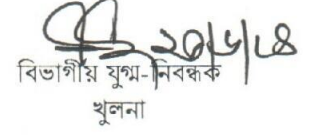 ২০/৮/১৪
বিভাগীয় যুগ্ম-নিবন্ধক
খুলনা